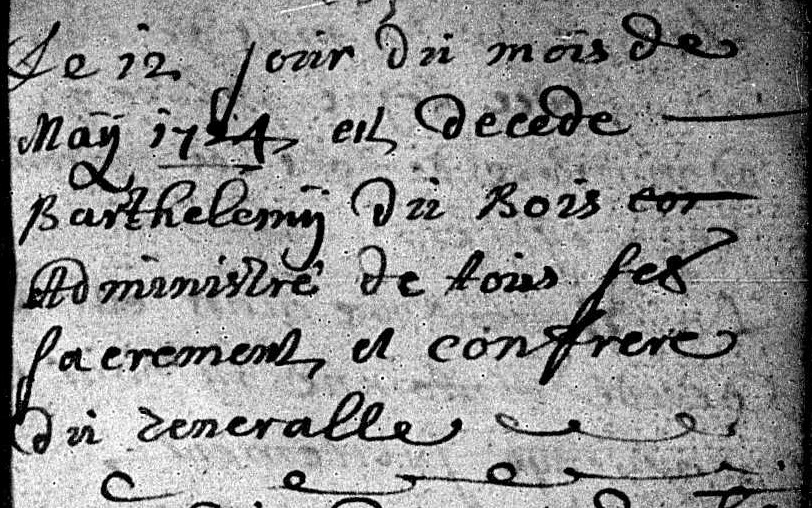 Le 12 jour du mois de
Maÿ 1724, est decede
Barthelemÿ du Bois
Administré de tous ses
sacrement, et confrere
du veneralle